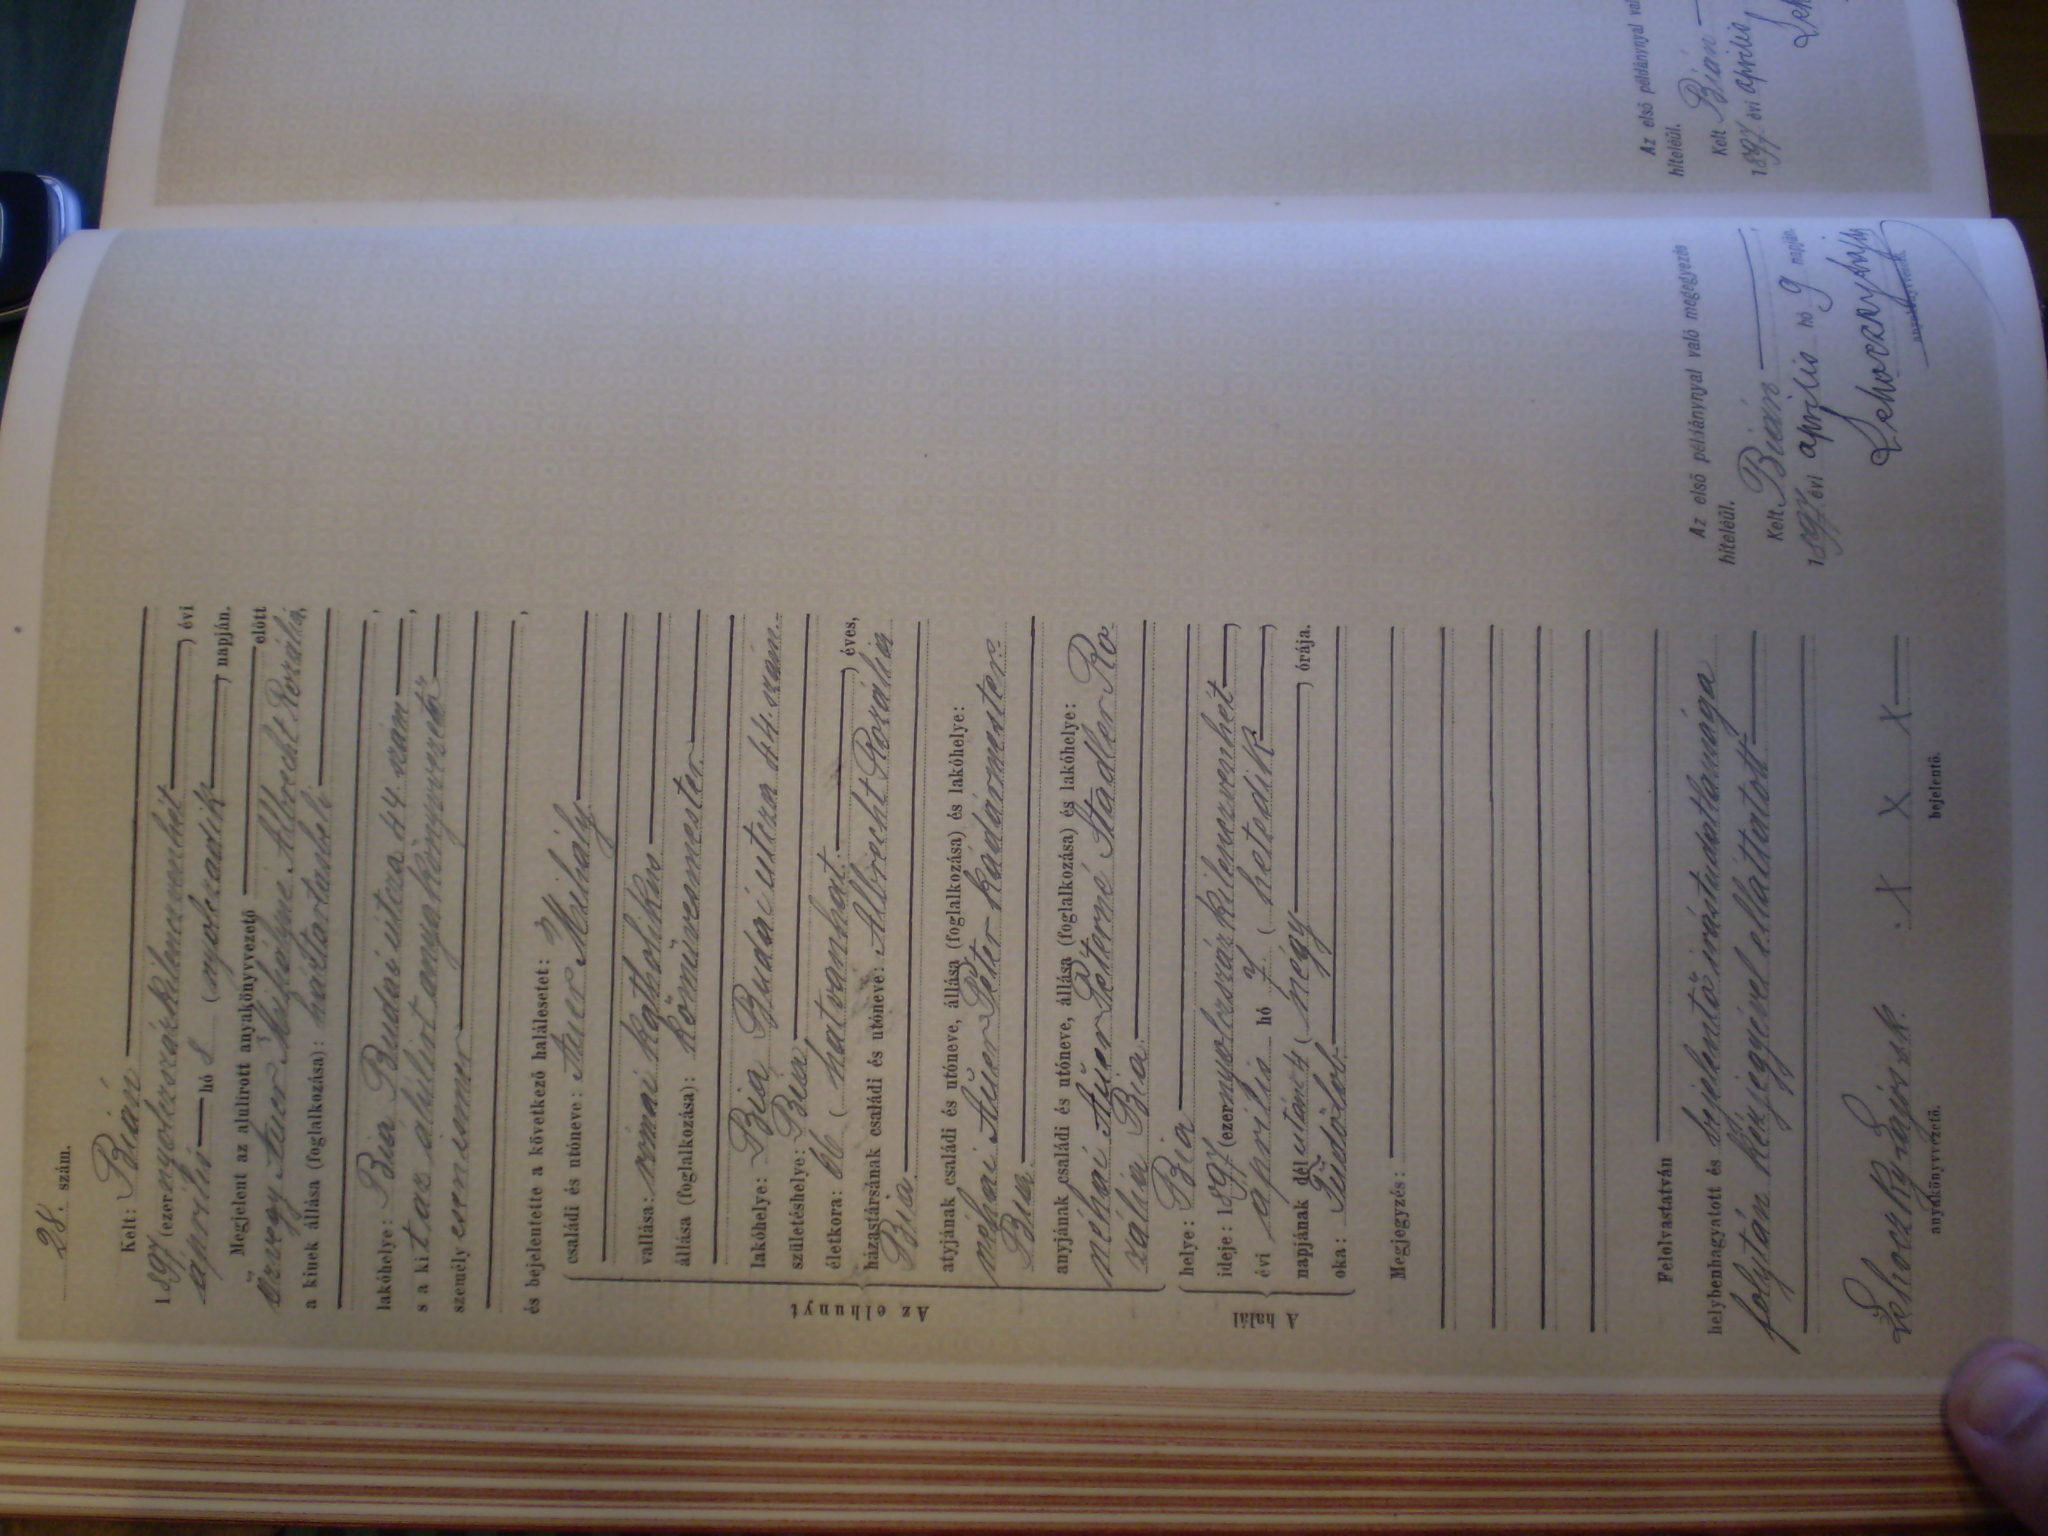 28. szám.
Kelt: Bián
1897 (ezernyolczszázkilenczvenhét) évi
április hó 8 (nyolczadik) napján.
Megjelent az alulirott anyakönyvvezető előtt
özvegy Auer Mihályné Albrecht Rozália,
a kinek állása (foglalkozása): háztartásbeli
lakóhelye: Bia Budai utcza 44. szám,
s a kit az alulirt anyakönyvvezető
személyesen ismer
,
és bejelentette a következő halálesetet:
Az elhunyt
családi és utóneve: Auer Mihály
vallása: római katholikus
állása (foglalkozása): kőmüvesmester
lakóhelye: Bia Budai utcza 44. szám
születéshelye: Bia
életkora: 66 (hatvanhat) éves,
házastársának családi és utóneve: Albrecht Rozália
Bia.
atyjának családi és utóneve, állása (foglalkozása) és lakóhelye:
néhai Auer Péter kádármester
Bia.
anyjának családi és utóneve, állása (foglalkozása) és lakóhelye:
néhai Auer Péterné Stadler Ro-
zália Bia
A halál
helye: Bia
ideje: 1897 (ezernyolczszázkilenczvenhét)
évi április hó 7 (hetedik)
napjának délután 4 (négy) órája.
oka: Tüdőlob.
Megjegyzés:
Felolvastatván
helybenhagyatott és bejelentő irástudatlansága
folytán kézjegyével elláttatott
Lehoczky
anyakönyvvezető.
x x x
bejelentő.
Az első példánynyal való megegyezés
hiteléül.
Kelt Bián
1897 évi április hó 9 napján.
Lehoczky
anyakönyvvezető.
Az első példánynyal
hiteléül.
Kelt Bián
1897 évi április